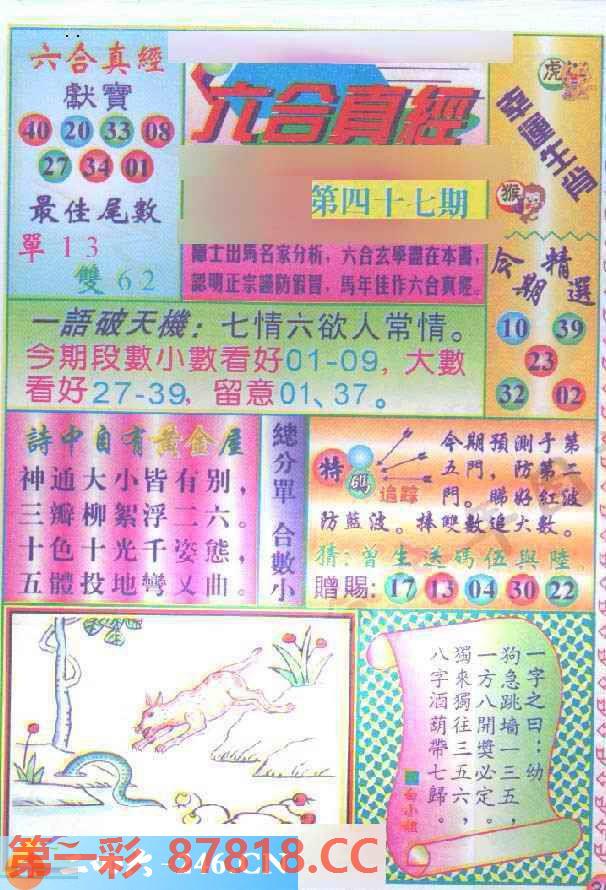 六合真經
獻寶
40 20 33 08
27 34 01
最佳尾數
單13
雙62
六合真經
第四十七期
隱士出馬名家分析，六合玄學盡在本書，
認明正宗謹防假冒，馬年佳作六合真經。
虎
幸運生肖
猴
今期精選
10 39
23
32 02
一語破天機：七情六欲人常情。
今期段數小數看好01-09，大數
看好27-39，留意01、37。
詩中自有黃金屋
神通大小皆有别，
三瓣柳絮浮二六。
十色十光千姿態，
五體投地彎又曲。
總分單 合數小
特碼追踪
今期預測于第
五門，防第二
門。睇好紅波
防藍波。捧雙數追大數。
猜：曾生送碼伍與陸
贈賜：17 13 04 30 22
一字之曰：幼
狗急跳墙一三五，
一方八開獎必定。
獨來獨往三五六，
八字酒葫帶七歸。
白小姐
第一彩 87818.CC
246.CN